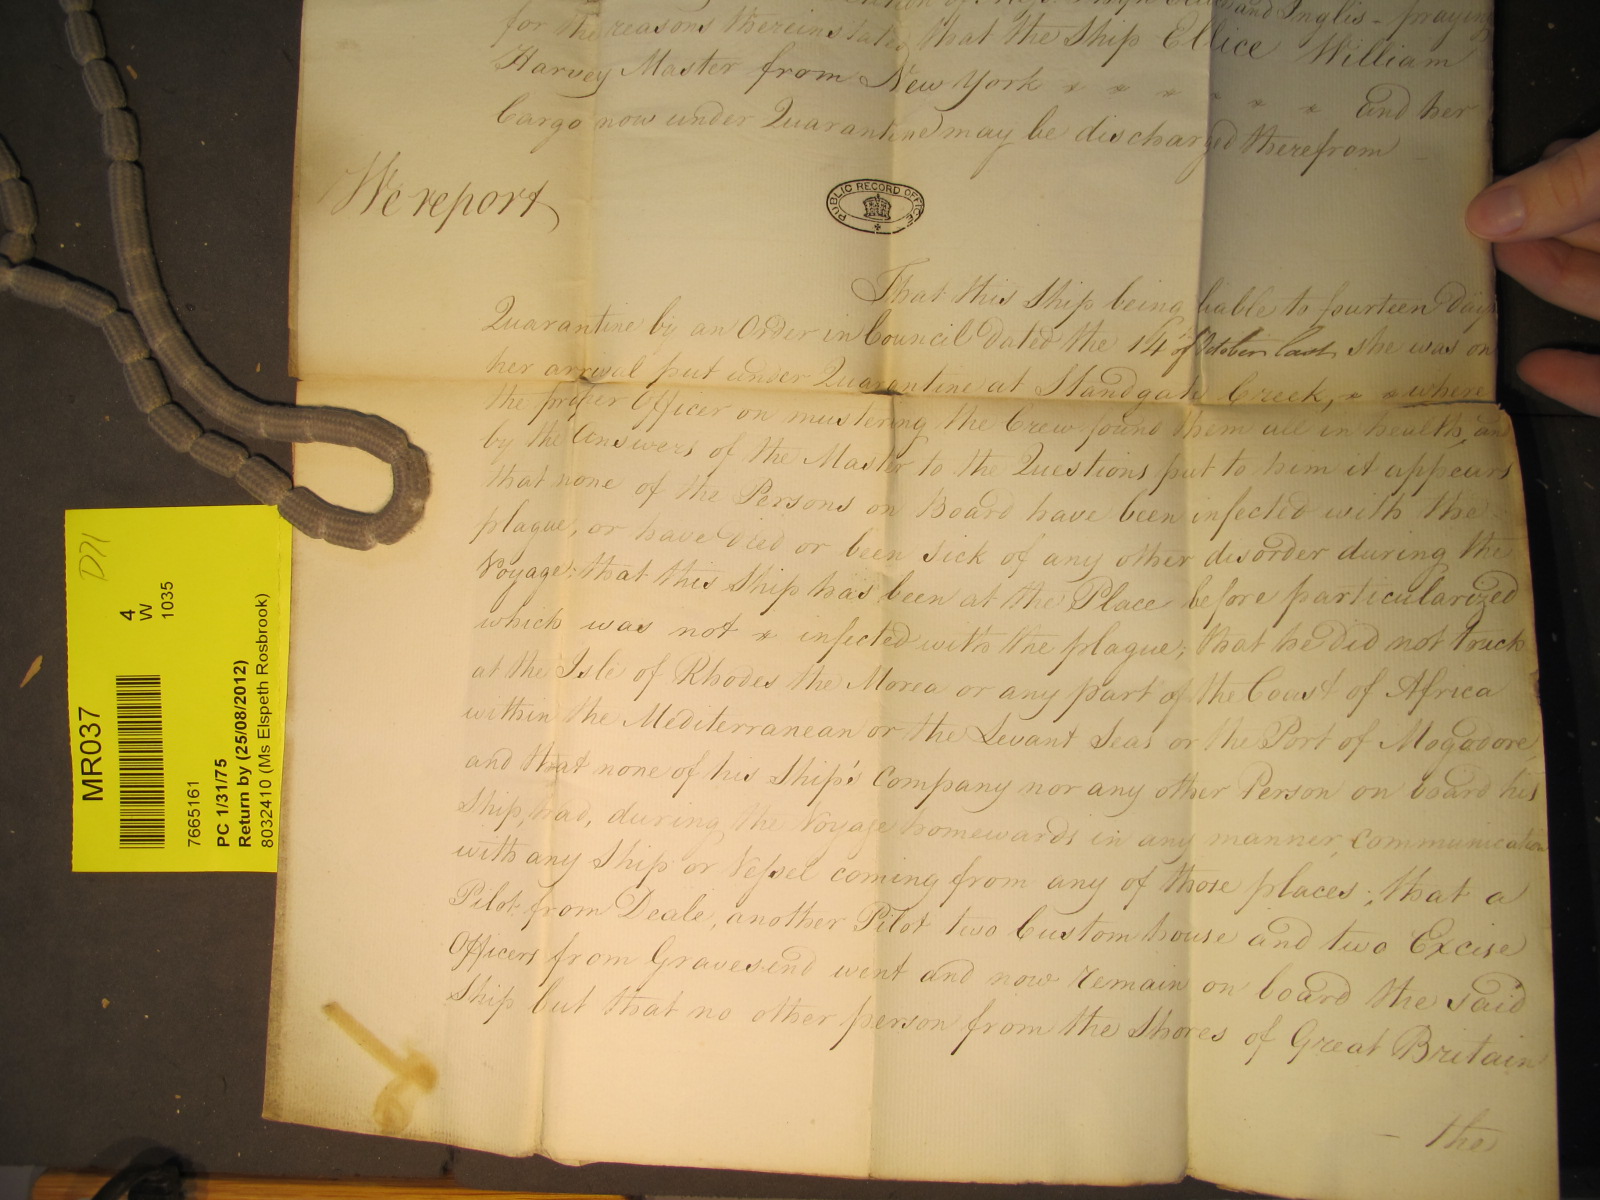 and Inglis - praying
for the reasons therein stated that the Ship Ellice William
Harvey Master from New York × × × × × × and her
Cargo now under Quarantine may be discharged therefrom
We report
PUBLIC RECORD OFFICE
That this Ship being liable to fourteen Days
Quarantine by an Order in Council dated the 14th of October last she was on
her arrival put under Quarantine at Standgate Creek, × × where
the proper Officer on mustering the Crew found them all in health, and
by the Answers of the Master to the Questions put to him it appears
that none of the Persons on Board have been infected with the
plague, or have died or been sick of any other disorder during the
Voyage; that this Ship has been at the Place before particularized
which was not × infected with the plague; that he did not touch
at the Isle of Rhodes the Morea or any part of the Coast of Africa
within the Mediterranean or the Levant Seas or the Port of Mogodore,
and that none of his Ship's Company nor any other Person on board his
Ship, had, during the Voyage homewards in any manner, communication
with any Ship or Vessel coming from any of those places; that a
Pilot from Deale, another Pilot two Custom house and two Excise
Officers from Gravesend went and now remain on board the said
Ship but that no other person from the Shores of Great Britain
- the
D71
MR037
4
W
1035
7665161
PC 1/31/75
Return by (25/08/2012)
8032410 (Ms Elspeth Rosbrook)